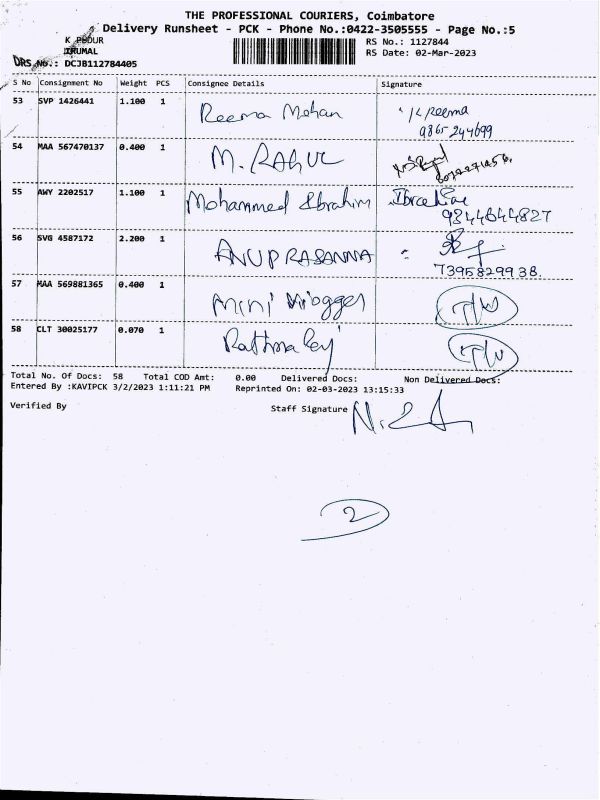 THE PROFESSIONAL COURIERS, Coimbatore
Delivery Runsheet - PCK - Phone No.:0422-3505555 - Page No.:5
K PUDUR
IRUMAL
RS No.: 1127844
RS Date: 02-Mar-2023
DRS No.: DCJB112784405
S No Consignment No Weight PCS Consignee Details Signature
53 SVP 1426441 1.100 1 Reema Mohan K Reema
9865244699
54 MAA 567470137 0.400 1 M. RAHUL
55 AWY 2202517 1.100 1 Mohammed Ibrahim Ibrahim
9344644827
56 SVG 4587172 2.200 1 ANUPRASANNA
7395829938.
57 MAA 569881365 0.400 1 Mini T/W
58 CLT 30025177 0.070 1 T/W
Total No. Of Docs: 58 Total COD Amt: 0.00 Delivered Docs: Non Delivered Docs:
Entered By :KAVIPCK 3/2/2023 1:11:21 PM Reprinted On: 02-03-2023 13:15:33
Verified By Staff Signature
2